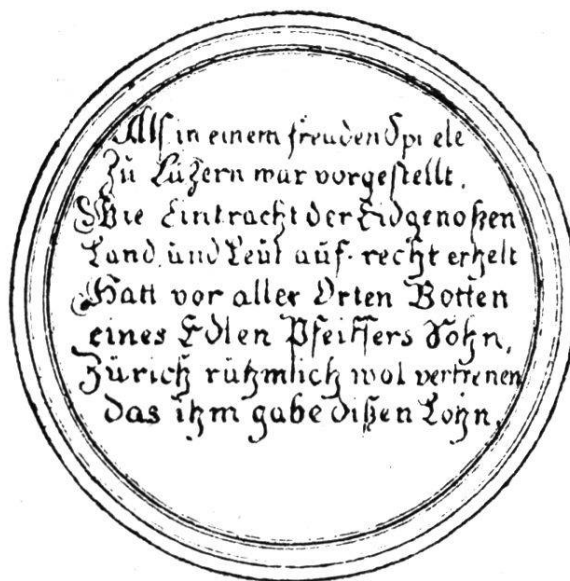 Alß in einem freuden Spiele
Zu Lüzern war vorgestellt,
Wie Eintracht der Eidgenoßen
Land und Leüt auf-recht erhelt
Hatt vor aller Orten Botten
eines Edlen Pfeiffers Sohn,
Zürich rühmlich wol vertretten
das ihm gabe dißen Lohn,